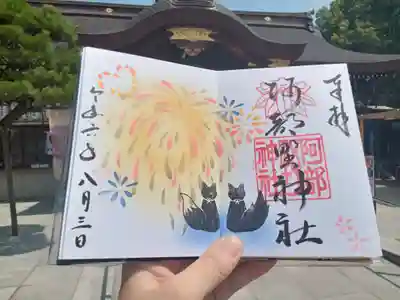 奉拝
阿部野神社
阿部
神社
令和六年八月三日